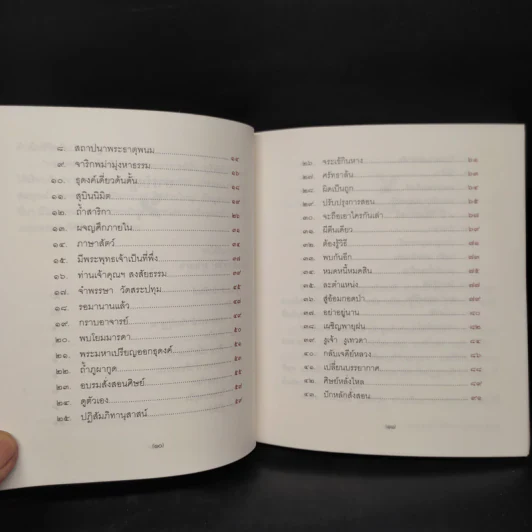 ๘. สถาปนาพระธาตุพนม ๑๔
๙. จาริกพม่ามุ่งหาธรรม ๑๗
๑๐. ธุดงค์เดี่ยวดั้นด้น ๑๘
๑๑. สุบินนิมิต ๑๙
๑๒. ถ้ำสาริกา ๒๖
๑๓. ผจญศึกภายใน ๓๑
๑๔. ภาษาสัตว์ ๓๔
๑๕. มีพระพุทธเจ้าเป็นที่พึ่ง ๓๗
๑๖. ท่านเจ้าคุณฯ สงสัยธรรม ๓๙
๑๗. จำพรรษา วัดสระปทุม ๔๗
๑๘. รอมานานแล้ว ๔๘
๑๙. กราบอาจารย์ ๔๙
๒๐. พบโยมมารดา ๕๐
๒๑. พระมหาเปรียญออกธุดงค์ ๕๑
๒๒. ถ้ำภูผากูด ๕๔
๒๓. อบรมสั่งสอนศิษย์ ๕๗
๒๔. ดูตัวเอง ๕๘
๒๕. ปฏิสัมภิทานุสาสน์ ๕๙
๒๖. จระเข้กินหาง ๖๑
๒๗. ศรัทธาล้น ๖๓
๒๘. ผิดเป็นถูก ๖๔
๒๙. ปรับปรุงการสอน ๖๕
๓๐. จะถือเอาใครกันเล่า ๖๗
๓๑. ผีตีนเดียว ๖๙
๓๒. ต้องรู้วิธี ๗๑
๓๓. พบกันอีก ๗๓
๓๔. หมดหนี้หมดสิน ๗๕
๓๕. ละตำแหน่ง ๗๗
๓๖. สู่อ้อมกอดป่า ๗๙
๓๗. อย่าอยู่นาน ๘๑
๓๘. เผชิญพายุฝน ๘๒
๓๙. รู้เจ้า รู้เทวดา ๘๔
๔๐. กลับเจดีย์หลวง ๘๖
๔๑. เปลี่ยนบรรยากาศ ๘๘
๔๒. ศิษย์หลั่งไหล ๘๙
๔๓. ปักหลักสั่งสอน ๙๑